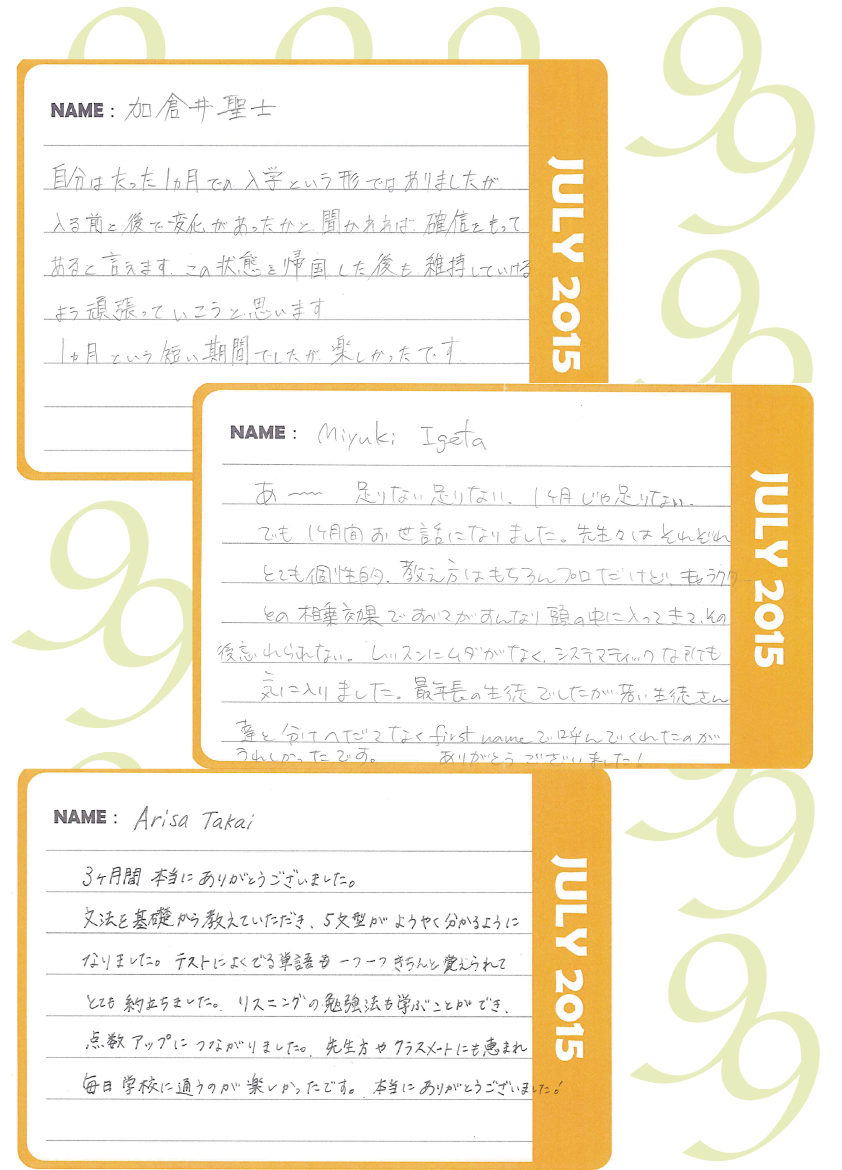 NAME : 加倉井聖士
自分はたった1ヵ月での入学という形ではありましたが
入る前と後で変化があったかと聞かれれば、確信をもって
あると言えます。この状態を帰国した後も維持していける
よう頑張っていこうと思います
1ヵ月という短い期間でしたが、楽しかったです
JULY 2015
NAME : Miyuki Igeta
あ〜〜 足りない足りない、1ヶ月じゃ足りない。
でも1ヶ月間お世話になりました。先生々はそれぞれ
とても個性的、教え方はもちろんプロだけど、キャラクター
との相乗効果ですべてがすんなり頭の中に入ってきて、その
後忘れられない。レッスンにムダがなく、システマティックな所も
気に入りました。最年長の生徒でしたが若い生徒さん
達と分けへだてなくfirst nameで呼んでくれたのが
うれしかったです。 ありがとうございました!
JULY 2015
NAME : Arisa Takai
3ヶ月間 本当にありがとうございました。
文法を基礎から教えていただき、5文型がようやく分かるように
なりました。テストによくでる単語も一つ一つきちんと覚えられて
とても約立ちました。リスニングの勉強法も学ぶことができ、
点数アップにつながりました。先生方やクラスメートにも恵まれ
毎日学校に通うのが楽しかったです。本当にありがとうございました!
JULY 2015
99
99
99
99
99